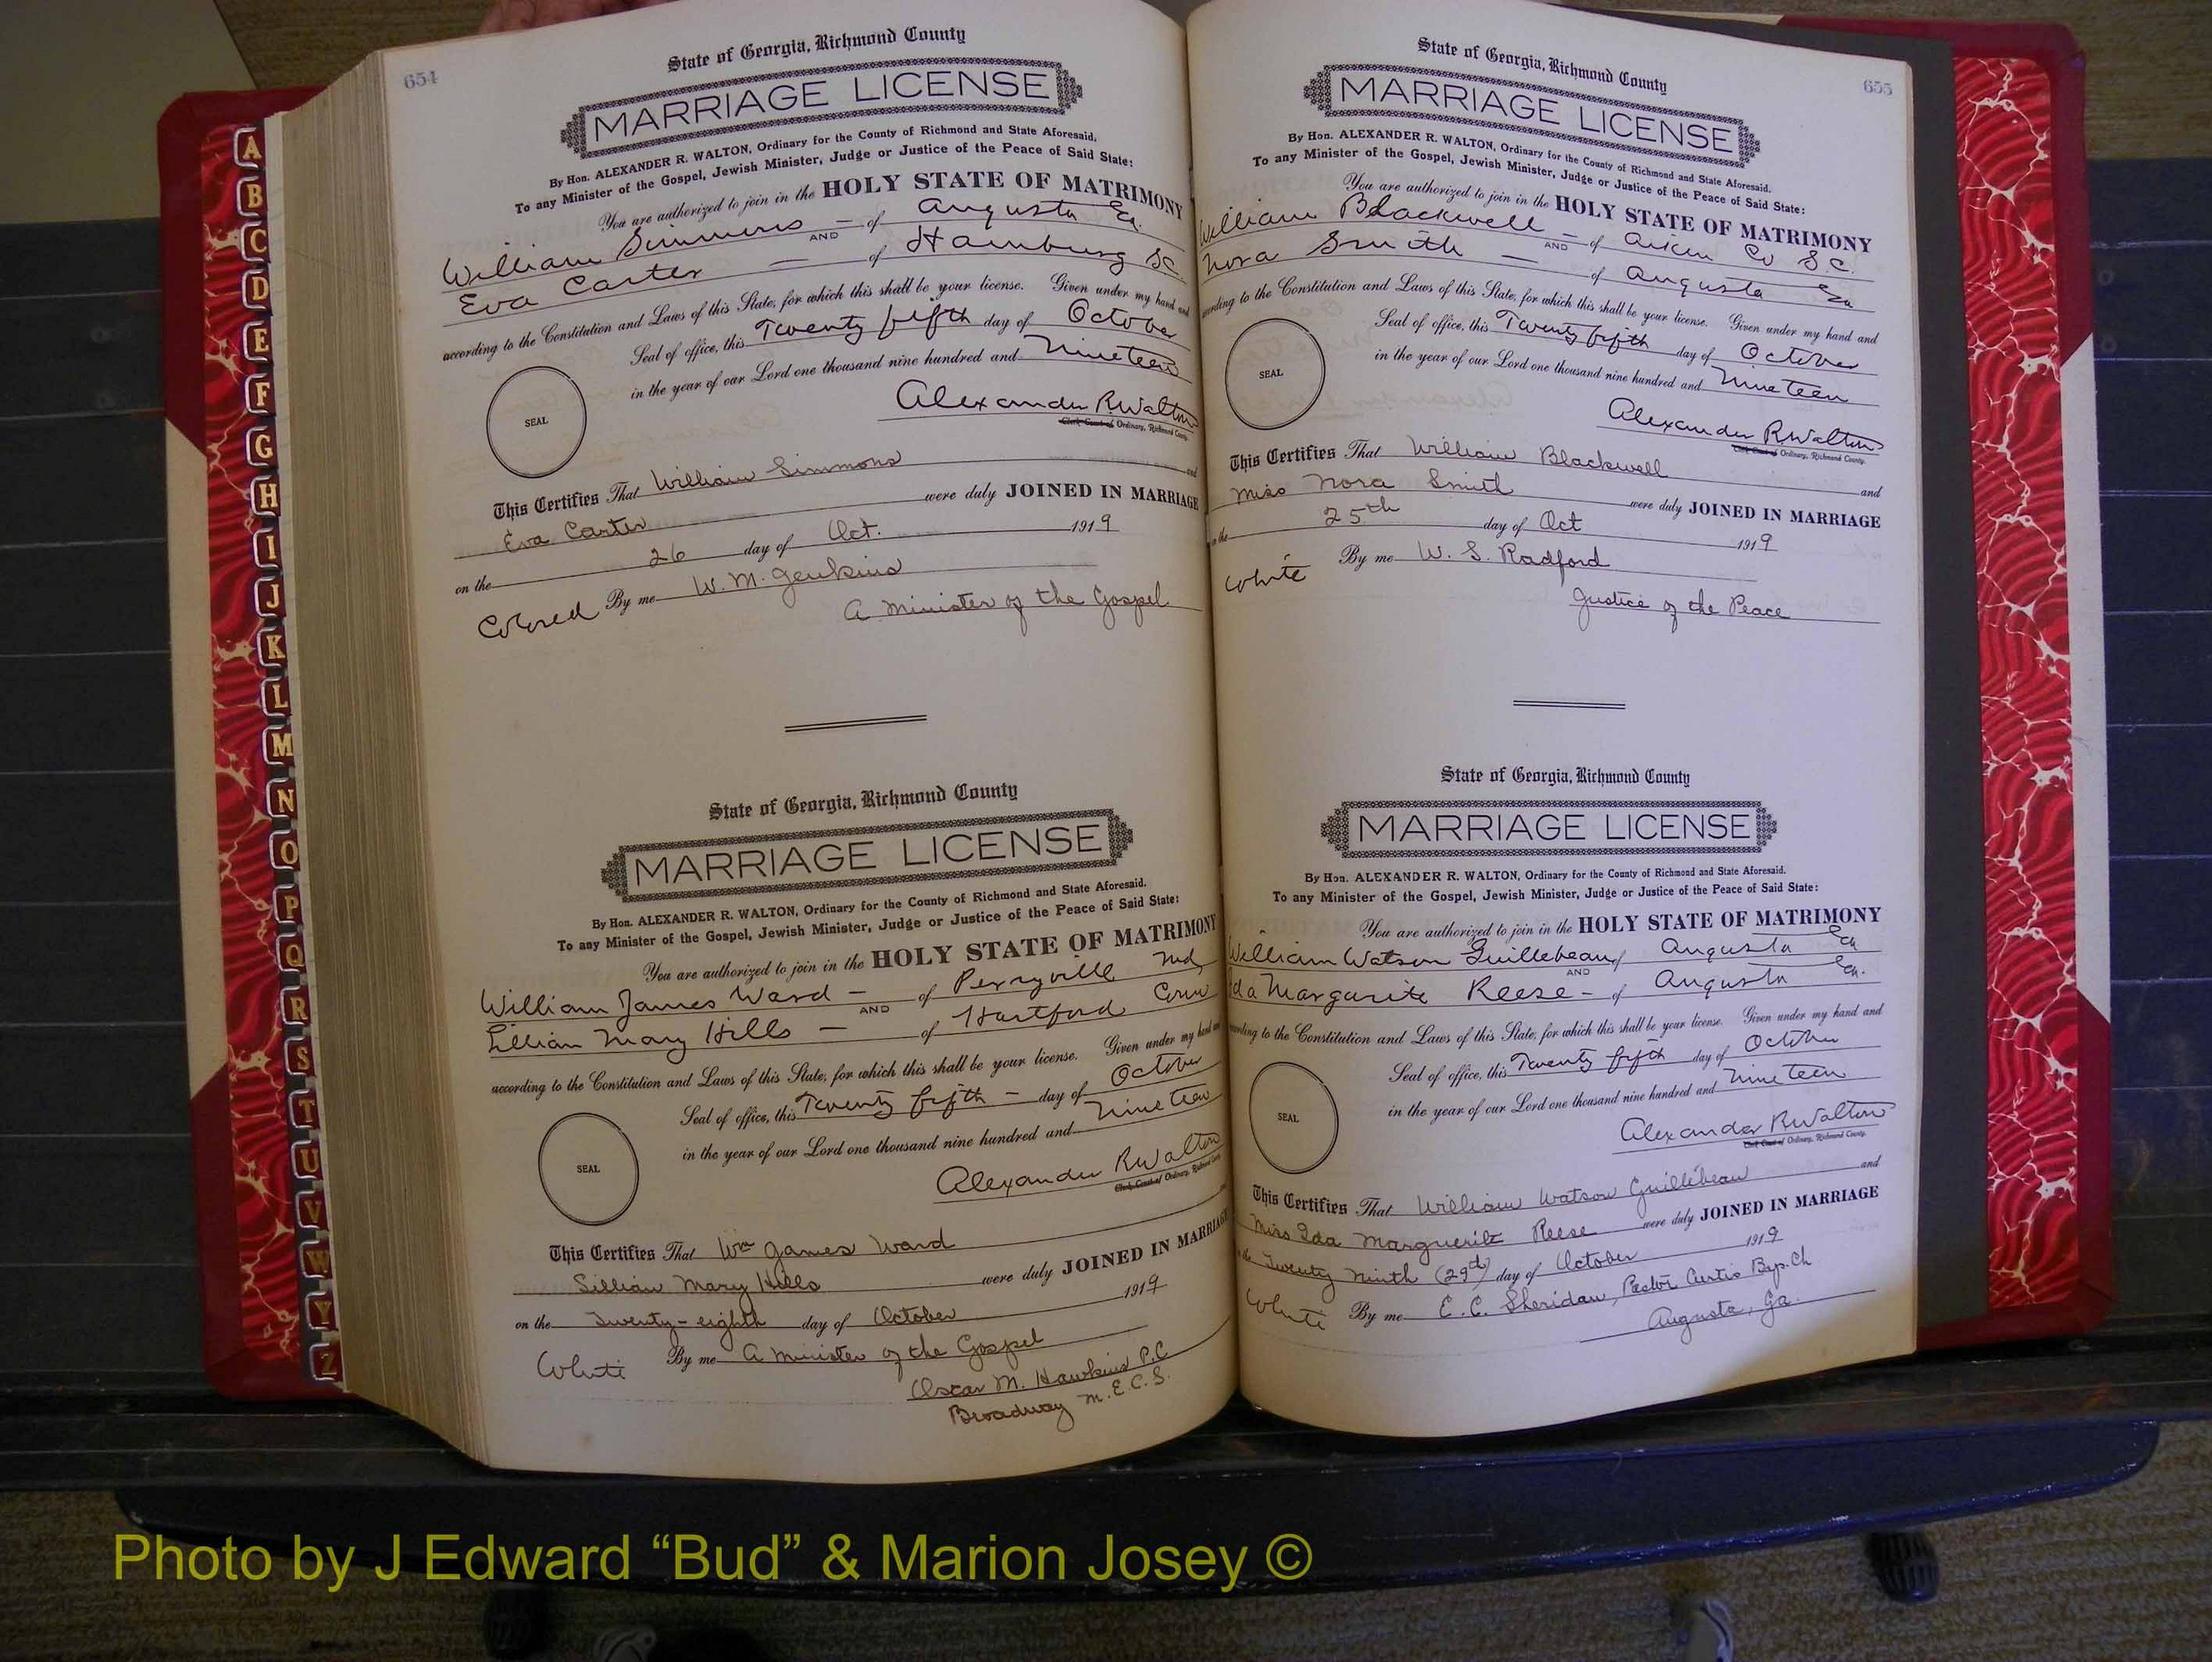 654
State of Georgia, Richmond County
MARRIAGE LICENSE
By Hon. ALEXANDER R. WALTON, Ordinary for the County of Richmond and State Aforesaid.
To any Minister of the Gospel, Jewish Minister, Judge or Justice of the Peace of Said State:
You are authorized to join in the HOLY STATE OF MATRIMONY
William Simmons — of Augusta Ga.
AND
Eva Carter — of Hamburg SC
according to the Constitution and Laws of this State, for which this shall be your license. Given under my hand and
Seal of office, this Twenty fifth day of October
in the year of our Lord one thousand nine hundred and Nineteen
SEAL
Alexander R. Walton
Clerk Court of Ordinary, Richmond County.
This Certifies That William Simmons and
Eva Carter were duly JOINED IN MARRIAGE
on the 26 day of Oct. 1919
Colored By me W. M. Jenkins
A Minister of the Gospel
State of Georgia, Richmond County
MARRIAGE LICENSE
By Hon. ALEXANDER R. WALTON, Ordinary for the County of Richmond and State Aforesaid.
To any Minister of the Gospel, Jewish Minister, Judge or Justice of the Peace of Said State:
You are authorized to join in the HOLY STATE OF MATRIMONY
William James Ward — of Perryville Md,
AND
Lillian Mary Hills — of Hartford Conn
according to the Constitution and Laws of this State, for which this shall be your license. Given under my hand and
Seal of office, this Twenty fifth — day of October
in the year of our Lord one thousand nine hundred and Nineteen
SEAL
Alexander R Walton
Clerk, Court of Ordinary, Richmond County.
This Certifies That Wm James Ward
Lillian Mary Hills were duly JOINED IN MARRIAGE
on the Twenty-eighth day of October 1919
White By me A Minister of the Gospel
Oscar M. Hawkins P.C
Broadway M.E.C.S.
655
State of Georgia, Richmond County
MARRIAGE LICENSE
By Hon. ALEXANDER R. WALTON, Ordinary for the County of Richmond and State Aforesaid.
To any Minister of the Gospel, Jewish Minister, Judge or Justice of the Peace of Said State:
You are authorized to join in the HOLY STATE OF MATRIMONY
William Blackwell — of Aiken Co S.C.
AND
Nora Smith — of Augusta Ga
according to the Constitution and Laws of this State, for which this shall be your license. Given under my hand and
Seal of office, this Twenty fifth day of October
in the year of our Lord one thousand nine hundred and Nineteen
SEAL
Alexander R. Walton
Clerk Court of Ordinary, Richmond County.
This Certifies That William Blackwell and
Miss Nora Smith were duly JOINED IN MARRIAGE
on the 25th day of Oct 1919
White By me W. S. Radford
Justice of the Peace
State of Georgia, Richmond County
MARRIAGE LICENSE
By Hon. ALEXANDER R. WALTON, Ordinary for the County of Richmond and State Aforesaid.
To any Minister of the Gospel, Jewish Minister, Judge or Justice of the Peace of Said State:
You are authorized to join in the HOLY STATE OF MATRIMONY
William Watson Guillebeau of Augusta Ga
AND
Ida Margurite Reese — of Augusta Ga.
according to the Constitution and Laws of this State, for which this shall be your license. Given under my hand and
Seal of office, this Twenty fifth day of October
in the year of our Lord one thousand nine hundred and Nineteen
SEAL
Alexander R Walton
Clerk Court of Ordinary, Richmond County.
This Certifies That William Watson Guillebeau and
Miss Ida Marguerite Reese were duly JOINED IN MARRIAGE
on the Twenty Ninth (29th) day of October 1919
White By me E. C. Sheridan, Pastor Curtis Bap. Ch
Augusta, Ga.
A
B
C
D
E
F
G
H
I
J
K
L
M
N
O
P
Q
R
S
T
U
V
W
Y
Z
Photo by J Edward “Bud” & Marion Josey ©